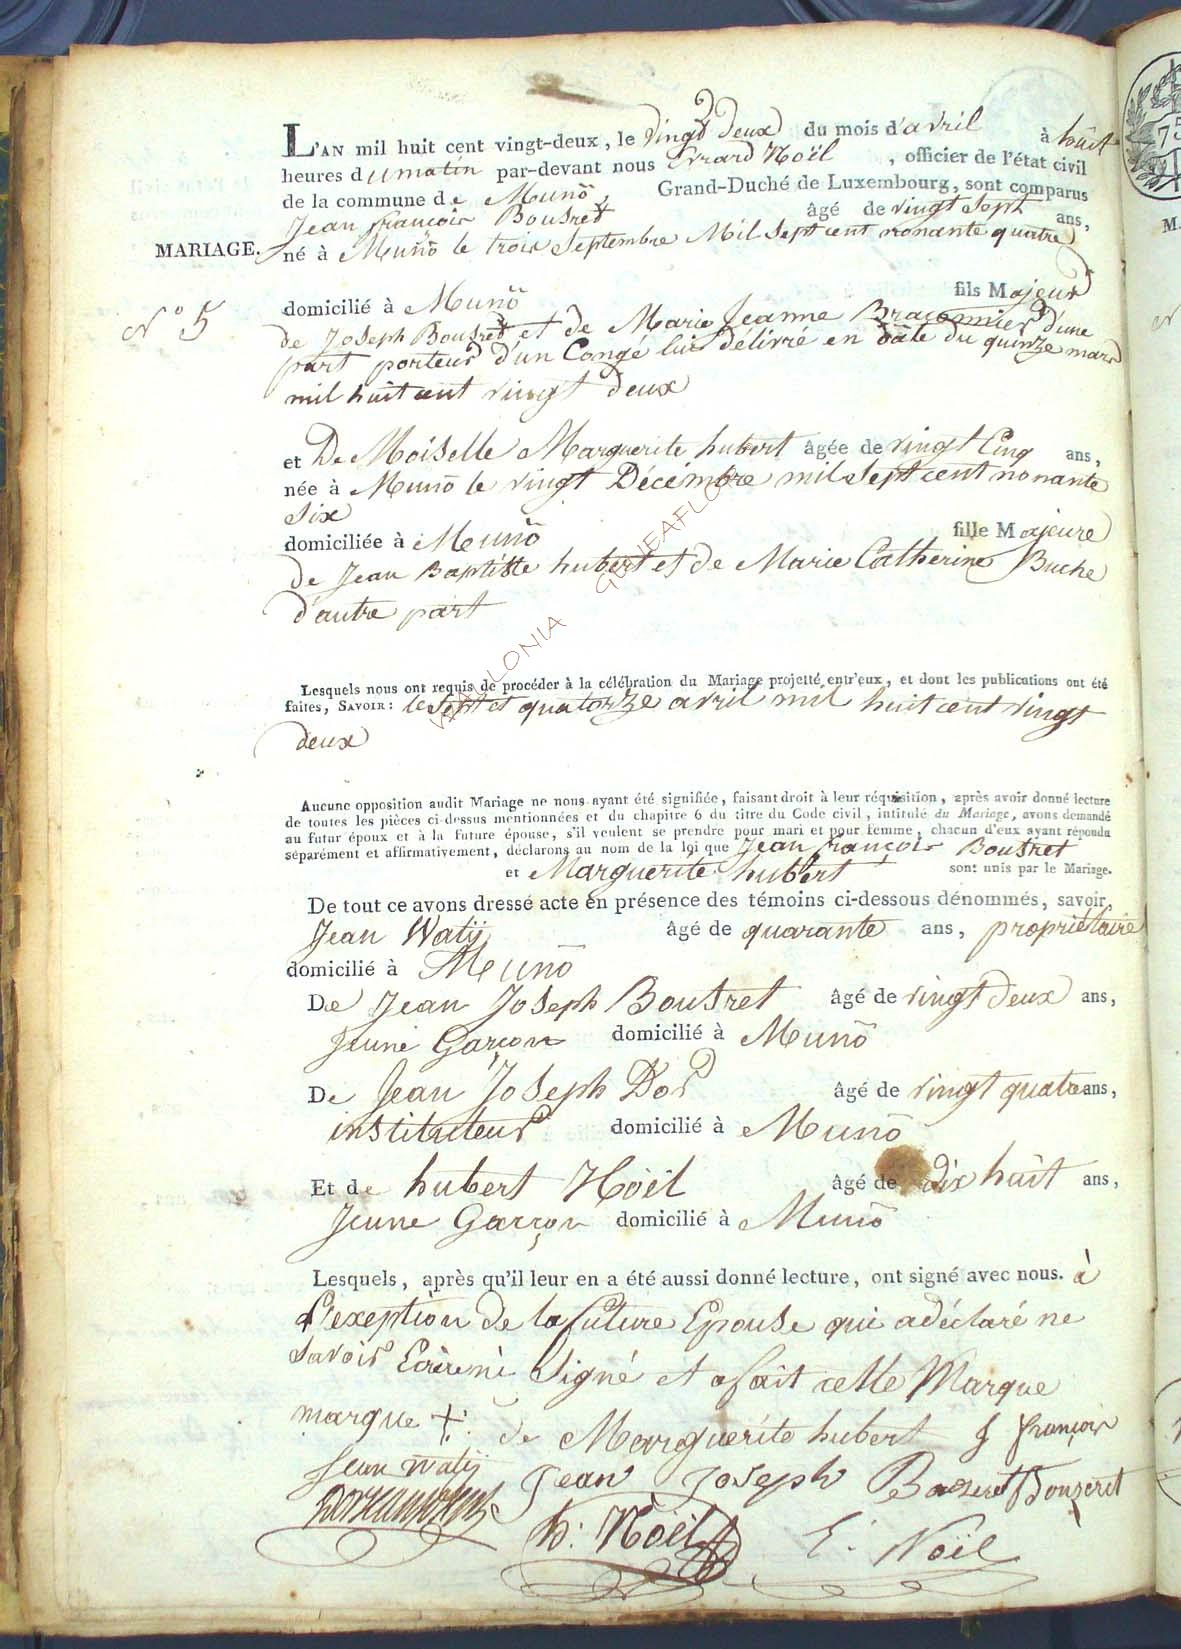 L'AN mil huit cent vingt-deux, le vingt deux du mois d'avril à huit
heures du matin par-devant nous Evrard Noël, officier de l'état civil
de la commune de Munõ, Grand-Duché de Luxembourg, sont comparus
Jean françois Bousret âgé de vingt sept ans,
MARIAGE. né à Munõ le trois Septembre Mil Sept cent nonante quatre
N° 5 domicilié à Munõ fils Majeur
de Joseph Bousret et de Marie Jeanne Braconnier d'une
part porteur d'un Congé lui délivré en date du quinze mars
mil huit cent vingt deux
et De Moiselle Marguerite hubert âgée de vingt Cinq ans,
née à Munõ le vingt Décémbre mil Sept cent nonante
Six
domiciliée à Munõ fille Majeure
de Jean Baptiste hubert et de Marie Catherine Buche
d'autre part
WALLONIA GUNEAFLOR
Lesquels nous ont requis de procéder à la célébration du Mariage projetté entr'eux, et dont les publications ont été
faites, SAVOIR: le Sept et quatorze avril mil huit cent vingt
deux
Aucune opposition audit Mariage ne nous ayant été signifiée, faisant droit à leur réquisition, après avoir donné lecture
de toutes les pièces ci-dessus mentionnées et du chapitre 6 du titre du Code civil, intitulé du Mariage, avons demandé
au futur époux et à la future épouse, s'il veulent se prendre pour mari et pour femme, chacun d'eux ayant répondu
séparément et affirmativement, déclarons au nom de la loi que Jean françois Bousret
et Marguerite hubert sont unis par le Mariage.
De tout ce avons dressé acte en présence des témoins ci-dessous dénommés, savoir,
Jean Watÿ âgé de quarante ans, propriétaire
domicilié à Munõ
De Jean Joseph Bousret âgé de vingt deux ans,
Jeune Garçon domicilié à Munõ
De Jean Joseph Dor âgé de vingt quatre ans,
instituteur domicilié à Munõ
Et de hubert Noël âgé de dix huit ans,
Jeune Garçon domicilié à Munõ
Lesquels, après qu'il leur en a été aussi donné lecture, ont signé avec nous. à
l'exeption de la future Epouse qui a déclaré ne
Savoir Ecrire ni Signé et a fait cette Marque
marque + de Marguerite hubert J françois
Jean Watÿ Jean Joseph Bouzeret Bouzeret
h: Noël E: Noël